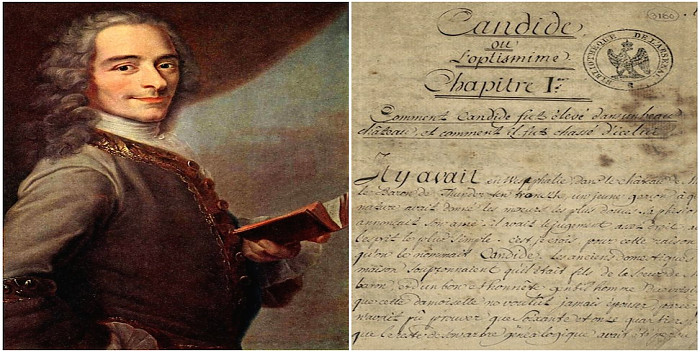 3160
Candide
ou
l'optimisme
Chapitre I.er
BIBLIOTHEQUE DE L'ARSENAL
Comment Candide fut élevé dans un beau
château, et comment il fut chassé d'icelui
Il y avait en Westphalie dans le château de M.
le Baron de Thunder-ten-tronckh, un jeune garçon à qui
nature avait donné les mœurs les plus douces. sa phisi
annonçait son ame. il avait le jugement assez droit av
l'esprit le plus simple; c'est je crois pour cette raison
qu'on le nommait Candide. les anciens domestiques
maison soupçonnaient qu'il était fils de la Soeur de
baron, et d'un bon et honnête gentilhomme
que cette damoiselle ne voulut jamais épouser, parce
n'avait pû prouver que soixante et onze quartiers
que le reste de son arbre généalogique avait été